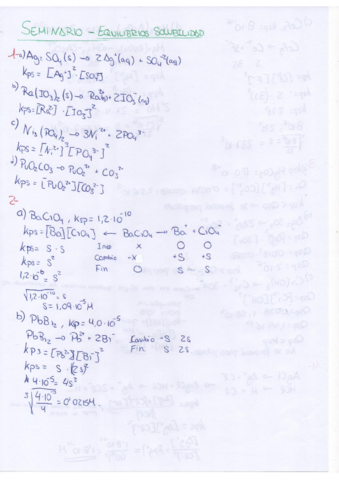 SEMINARIO - EQUILIBRIOS SOLUBILIDAD
1- a) Ag₂SO₄(s) → 2Ag⁺(aq) + SO₄⁻²(aq)
kps = [Ag⁺]²·[SO₄]
b) Ra(IO₃)₂(s) → Ra²⁺(aq) + 2IO₃⁻(aq)
kps = [Ra²⁺]·[IO₃⁻]²
c) Ni₃(PO₄)₂ → 3Ni²⁺ + 2PO₄³⁻
kps = [Ni²⁺]³[PO₄³⁻]²
d) PuO₂CO₃ → PuO₂²⁺ + CO₃²⁻
kps = [PuO₂²⁺][CO₃²⁻]
2-
a) BaCrO₄, ksp = 1,2·10⁻¹⁰
kps = [Ba][CrO₄] ← BaCrO₄ → Ba⁺ + CrO₄⁻
kps = S·S X O O
kps = S² Cambio -X +S +S
1,2·10⁻¹⁰ = S² Fin O S S
√1,2·10⁻¹⁰ = S
S = 1,09·10⁻⁵ M
b) PbBr₂, ksp = 4,0·10⁻⁵
PbBr₂ → Pb²⁺ + 2Br⁻ Cambio +S 2S
kps = [Pb²⁺][Br⁻]² Fin S 2S
kps = S·(2S)²
4·10⁻⁵ = 4S³
³√4·10⁻⁵/4 = 0'0215M